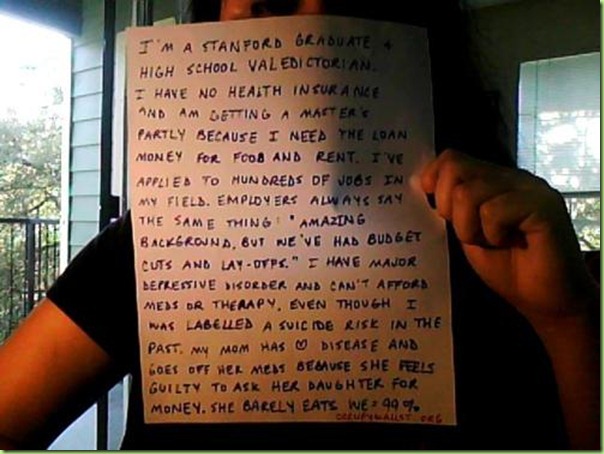 I'M A STANFORD GRADUATE &
HIGH SCHOOL VALEDICTORIAN.
I HAVE NO HEALTH INSURANCE
AND AM GETTING A MASTER'S
PARTLY BECAUSE I NEED THE LOAN
MONEY FOR FOOD AND RENT. I'VE
APPLIED TO HUNDREDS OF JOBS IN
MY FIELD. EMPLOYERS ALWAYS SAY
THE SAME THING: "AMAZING
BACKGROUND, BUT WE'VE HAD BUDGET
CUTS AND LAY-OFFS." I HAVE MAJOR
DEPRESSIVE DISORDER AND CAN'T AFFORD
MEDS OR THERAPY, EVEN THOUGH I
WAS LABELLED A SUICIDE RISK IN THE
PAST. MY MOM HAS ♡ DISEASE AND
GOES OFF HER MEDS BECAUSE SHE FEELS
GUILTY TO ASK HER DAUGHTER FOR
MONEY. SHE BARELY EATS. WE = 99%
OCCUPYWALLST.ORG